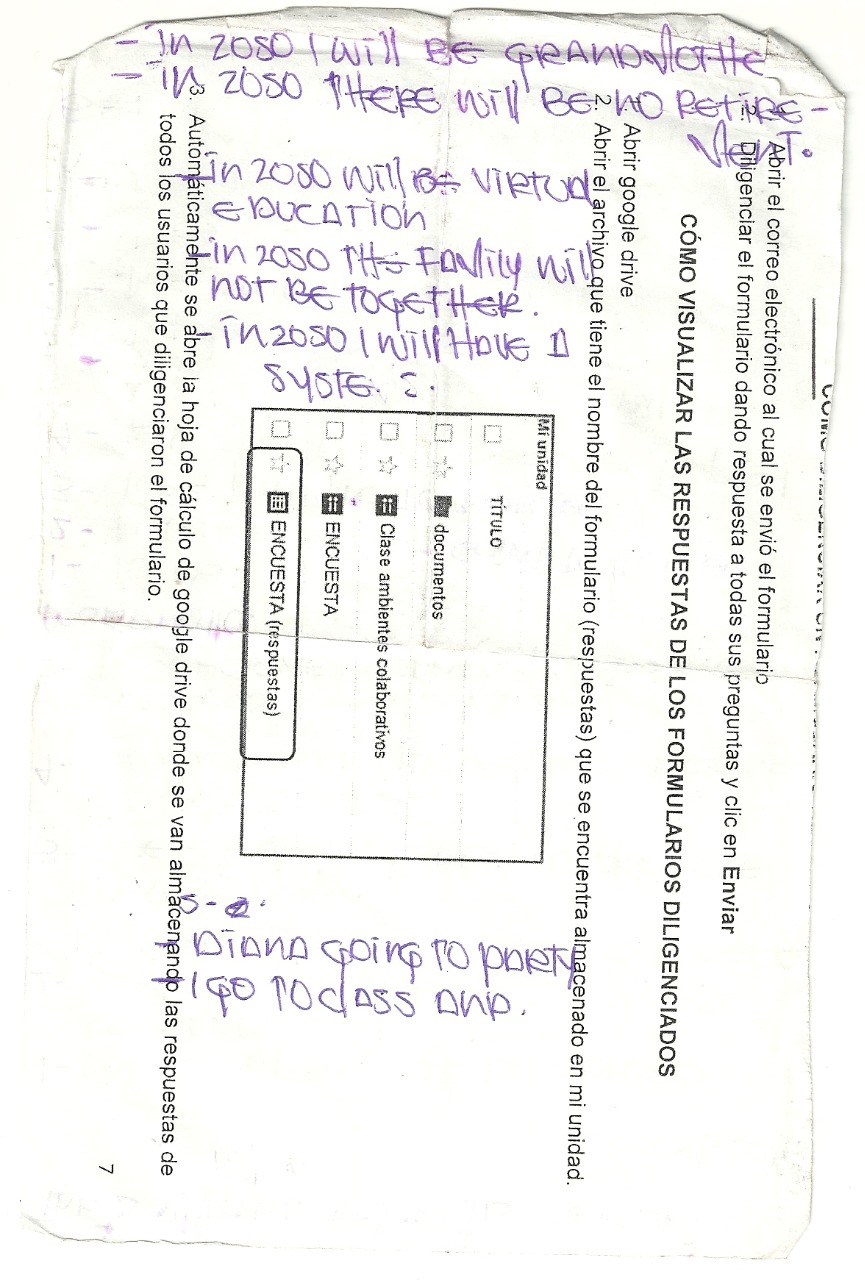 - IN 2050 I WILL BE GRANDMOTHE
- IN 2050 THERE WILL BE NO RETIRE-
MENT.
- IN 2050 WILL BE VIRTUAL
EDUCATION
- IN 2050 THE FAMILY WILL
NOT BE TOGETHER.
- IN 2050 I WILL HAVE A
SYSTE. S.
- DIANA GOING TO PARTY
- I GO TO CLASS AND.
1. Abrir el correo electrónico al cual se envió el formulario
2. Diligenciar el formulario dando respuesta a todas sus preguntas y clic en Enviar
CÓMO VISUALIZAR LAS RESPUESTAS DE LOS FORMULARIOS DILIGENCIADOS
1. Abrir google drive
2. Abrir el archivo que tiene el nombre del formulario (respuestas) que se encuentra almacenado en mi unidad.
Mi unidad
TÍTULO
documentos
Clase ambientes colaborativos
ENCUESTA
ENCUESTA (respuestas)
3. Automáticamente se abre la hoja de cálculo de google drive donde se van almacenando las respuestas de
todos los usuarios que diligenciaron el formulario.
7